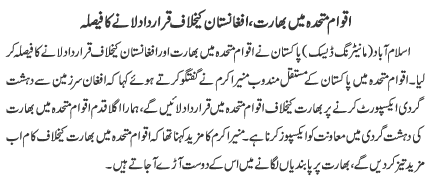 اقوام متحدہ میں بھارت، افغانستان کیخلاف قرارداد لانے کا فیصلہ
اسلام آباد (مانیٹرنگ ڈیسک) پاکستان نے اقوام متحدہ میں بھارت اور افغانستان کیخلاف قرارداد لانے کا فیصلہ کر
لیا۔ اقوام متحدہ میں پاکستان کے مستقل مندوب منیر اکرم نے گفتگو کرتے ہوئے کہا کہ افغان سرزمین سے دہشت
گردی ایکسپورٹ کرنے پر بھارت کیخلاف اقوام متحدہ میں قرارداد لائیں گے، ہمارا اگلا قدم اقوام متحدہ میں بھارت
کی دہشت گردی میں معاونت کو ایکسپوز کرنا ہے۔ منیر اکرم کا مزید کہنا تھا کہ اقوام متحدہ میں بھارت کیخلاف کام اب
مزید تیز کر دیں گے، بھارت پر پابندیاں لگانے میں اس کے دوست آڑے آ جاتے ہیں۔